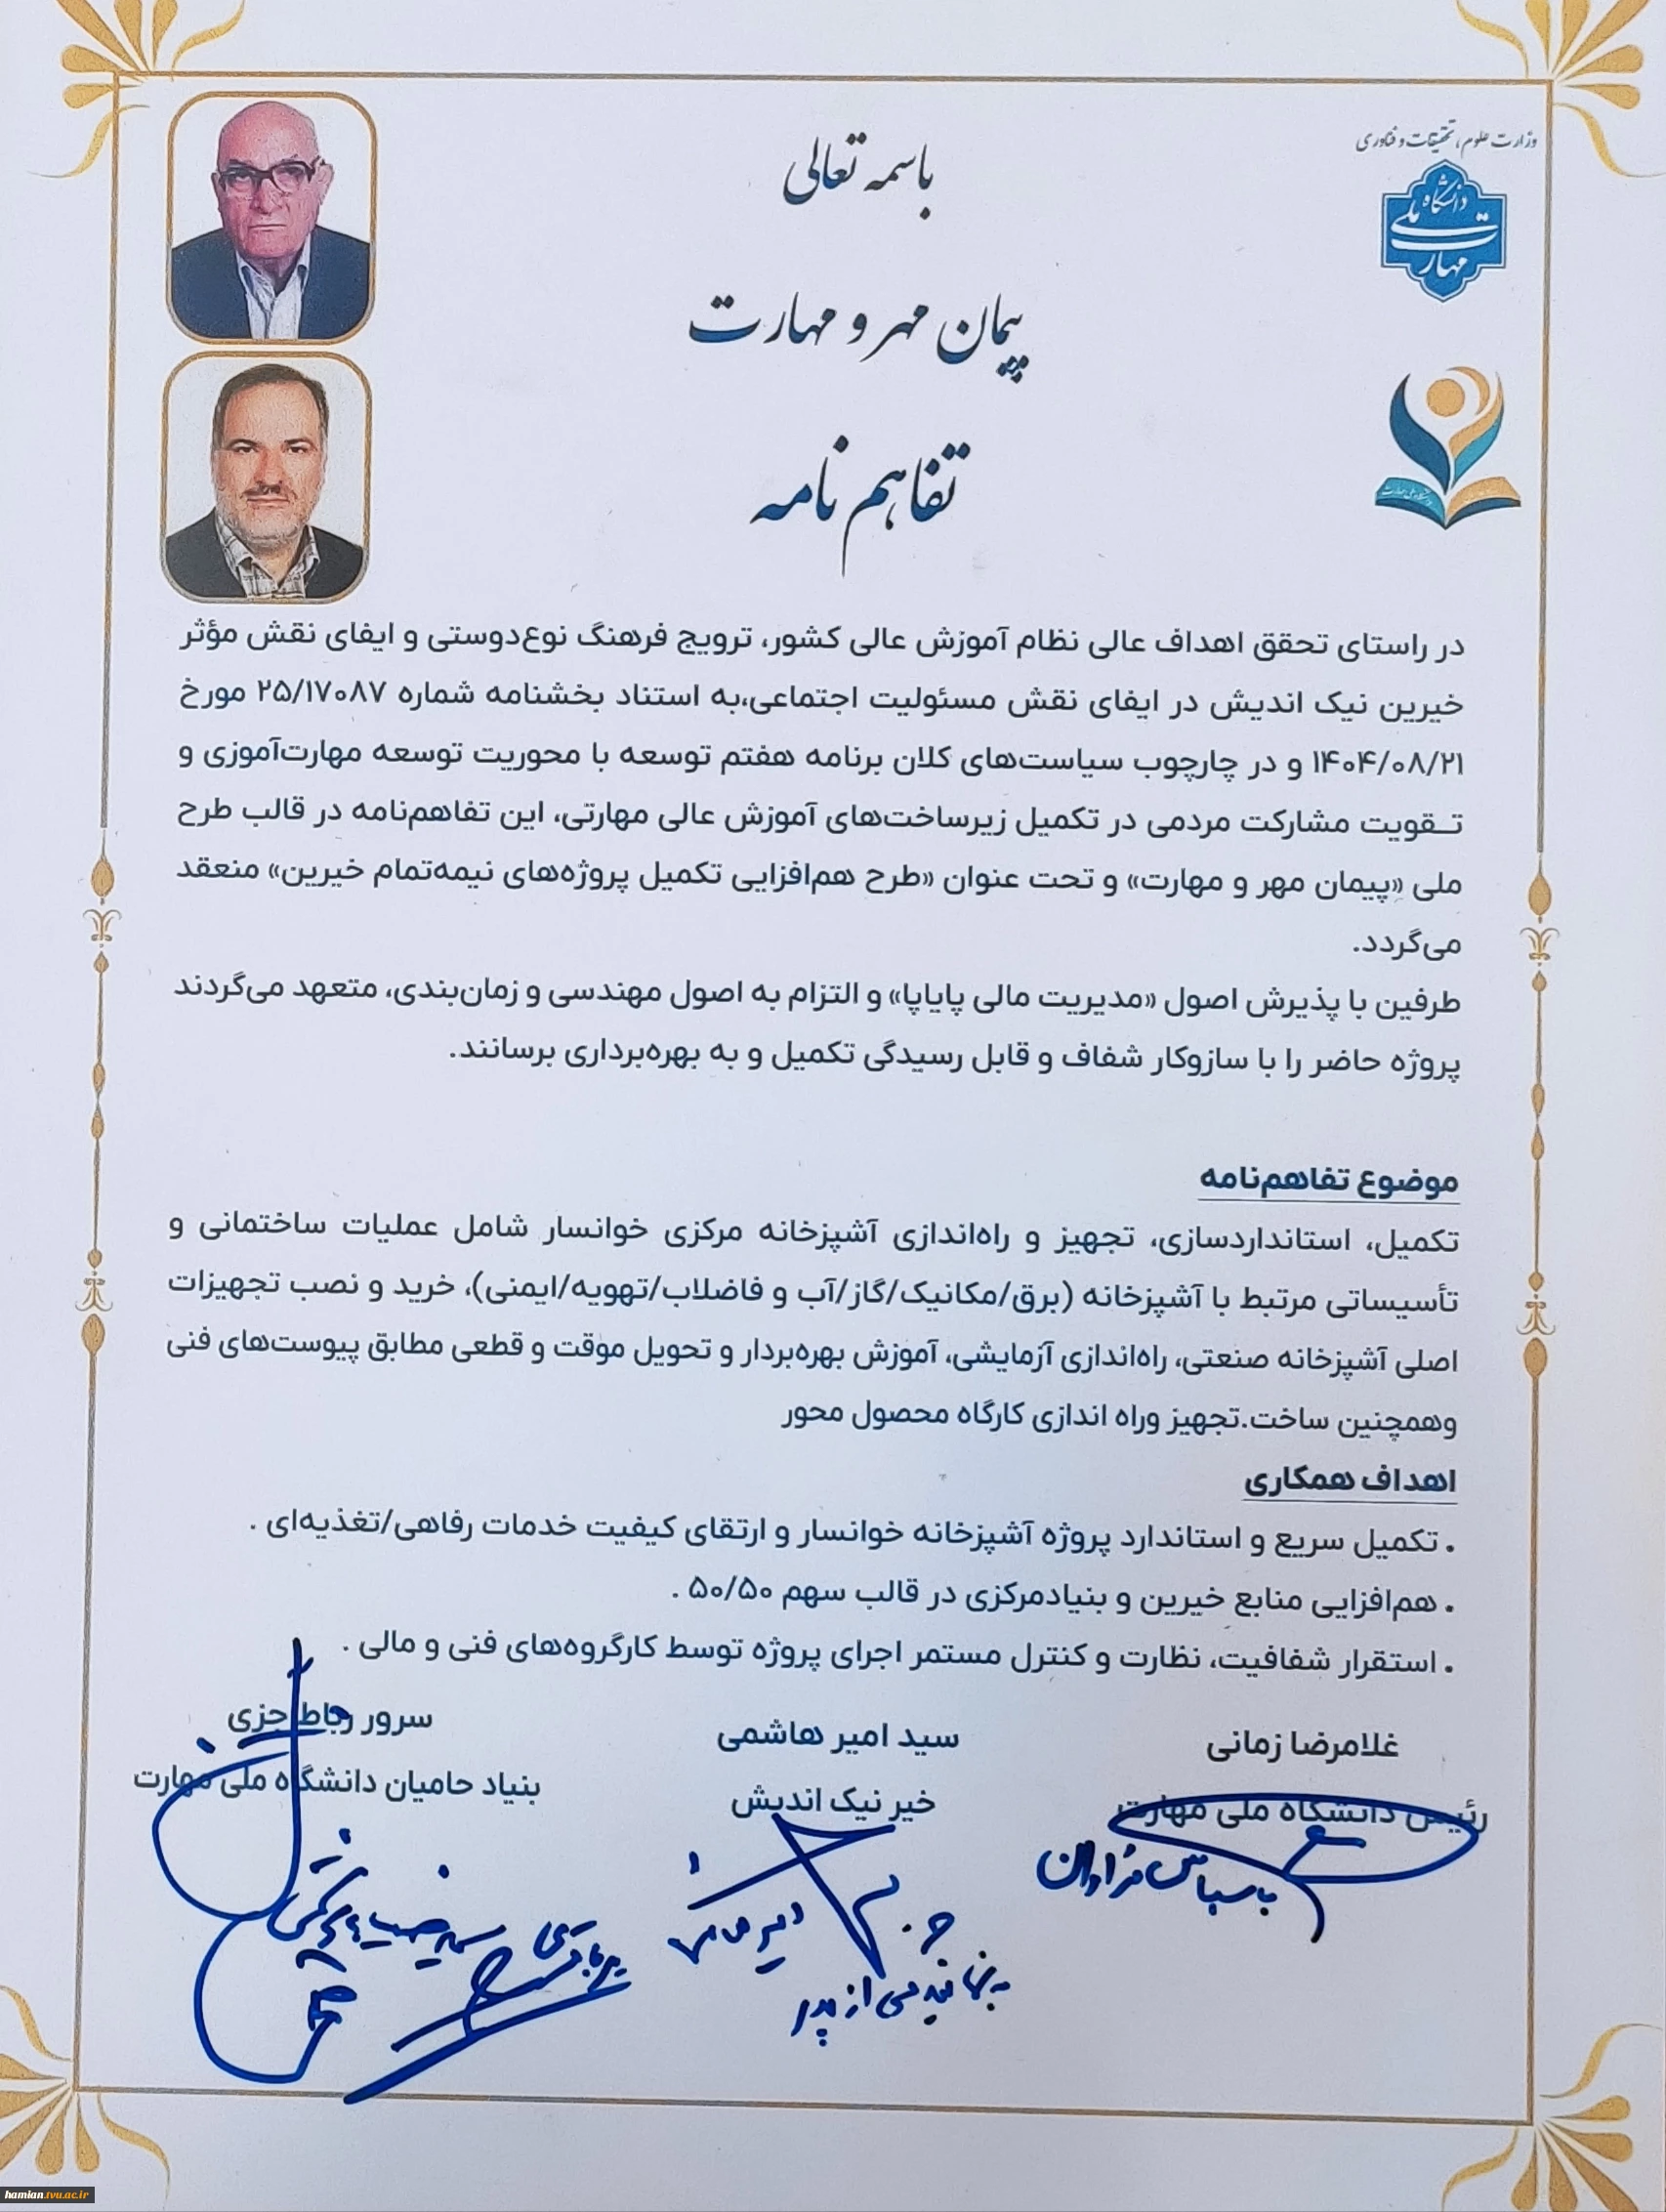 وزارت علوم، تحقیقات و فناوری
دانشگاه ملی مهارت
باسمه تعالی
پیمان مهر و مهارت
تفاهم نامه
در راستای تحقق اهداف عالی نظام آموزش عالی کشور، ترویج فرهنگ نوع‌دوستی و ایفای نقش مؤثر
خیرین نیک اندیش در ایفای نقش مسئولیت اجتماعی،به استناد بخشنامه شماره ۲۵/۱۷۰۸۷ مورخ
۱۴۰۴/۰۸/۲۱ و در چارچوب سیاست‌های کلان برنامه هفتم توسعه با محوریت توسعه مهارت‌آموزی و
تـقویت مشارکت مردمی در تکمیل زیرساخت‌های آموزش عالی مهارتی، این تفاهم‌نامه در قالب طرح
ملی «پیمان مهر و مهارت» و تحت عنوان «طرح هم‌افزایی تکمیل پروژه‌های نیمه‌تمام خیرین» منعقد
می‌گردد.
طرفین با پذیرش اصول «مدیریت مالی پایاپا» و التزام به اصول مهندسی و زمان‌بندی، متعهد می‌گردند
پروژه حاضر را با سازوکار شفاف و قابل رسیدگی تکمیل و به بهره‌برداری برسانند.
موضوع تفاهم‌نامه
تکمیل، استانداردسازی، تجهیز و راه‌اندازی آشپزخانه مرکزی خوانسار شامل عملیات ساختمانی و
تأسیساتی مرتبط با آشپزخانه (برق/مکانیک/گاز/آب و فاضلاب/تهویه/ایمنی)، خرید و نصب تجهیزات
اصلی آشپزخانه صنعتی، راه‌اندازی آزمایشی، آموزش بهره‌بردار و تحویل موقت و قطعی مطابق پیوست‌های فنی
وهمچنین ساخت.تجهیز وراه اندازی کارگاه محصول محور
اهداف همکاری
• تکمیل سریع و استاندارد پروژه آشپزخانه خوانسار و ارتقای کیفیت خدمات رفاهی/تغذیه‌ای .
• هم‌افزایی منابع خیرین و بنیادمرکزی در قالب سهم ۵۰/۵۰ .
• استقرار شفافیت، نظارت و کنترل مستمر اجرای پروژه توسط کارگروه‌های فنی و مالی .
غلامرضا زمانی
رئیس دانشگاه ملی مهارت
با سپاس فراوان
سید امیر هاشمی
خیر نیک اندیش
از پدر
سرور رباط جزی
بنیاد حامیان دانشگاه ملی مهارت
hamian.tvu.ac.ir